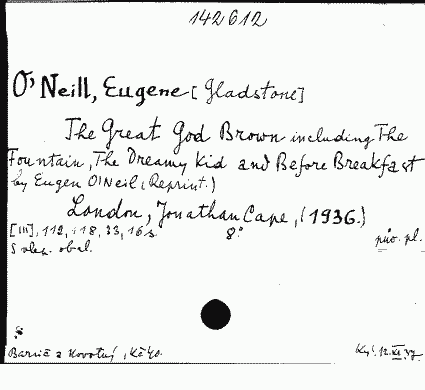 142612
O'Neill, Eugene [Gladstone]
The Great God Brown including The
Fountain, The Dreamy Kid and Before Breakfast
by Eugen O'Neil (Reprint.)
London, Jonathan Cape, (1936.)
[III], 112, 118, 33, 16 s. 8°
s ölez. obal. pův. pl.
Barvič a Novotný, Kč 40.